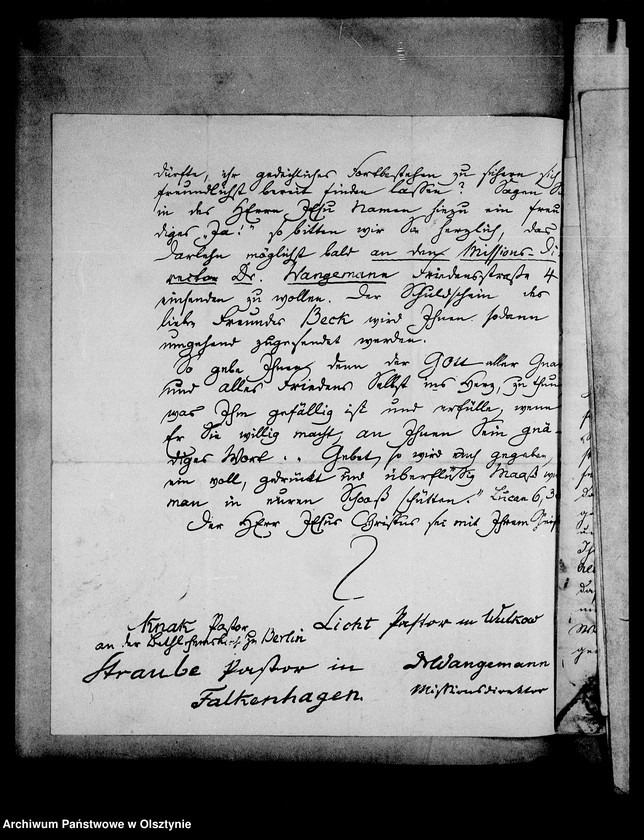 dürfte, ihr gedeihliches Fortbestehen zu sichern sich
freundlichst bereit finden lassen? Sagen S
in des HErrn JEsu Namen hiezu ein freu
diges „Ja!“ so bitten wir Sie herzlich, das
Darlehn möglichst bald an den Missions-Di
rector Dr. Wangemann Friedensstraße 4
einsenden zu wollen. Der Schuldschein des
lieben Freundes Beck wird Ihnen sodann
umgehend zugesendet werden.
So gebe Ihnen denn der Gott aller Gna
und alles Friedens Selbst ins Herz, zu thun
was Ihm gefällig ist und erfülle, wenn
Er Sie willig macht, an Ihnen Sein gnä
diges Wort: „Gebet, so wird euch gegeben,
ein voll, gedrückt und überflüssig Maaß w
man in euren Schooß schütten.“ Lucae 6, 3
Der HErr JEsus Christus sei mit Ihrem Geis
Knak Pastor
an der Bethlehemsk. zu Berlin
Licht Pastor in Wulkow
Straube Pastor in
Falkenhagen.
Dr Wangemann
Missionsdirektor
Archiwum Państwowe w Olsztynie